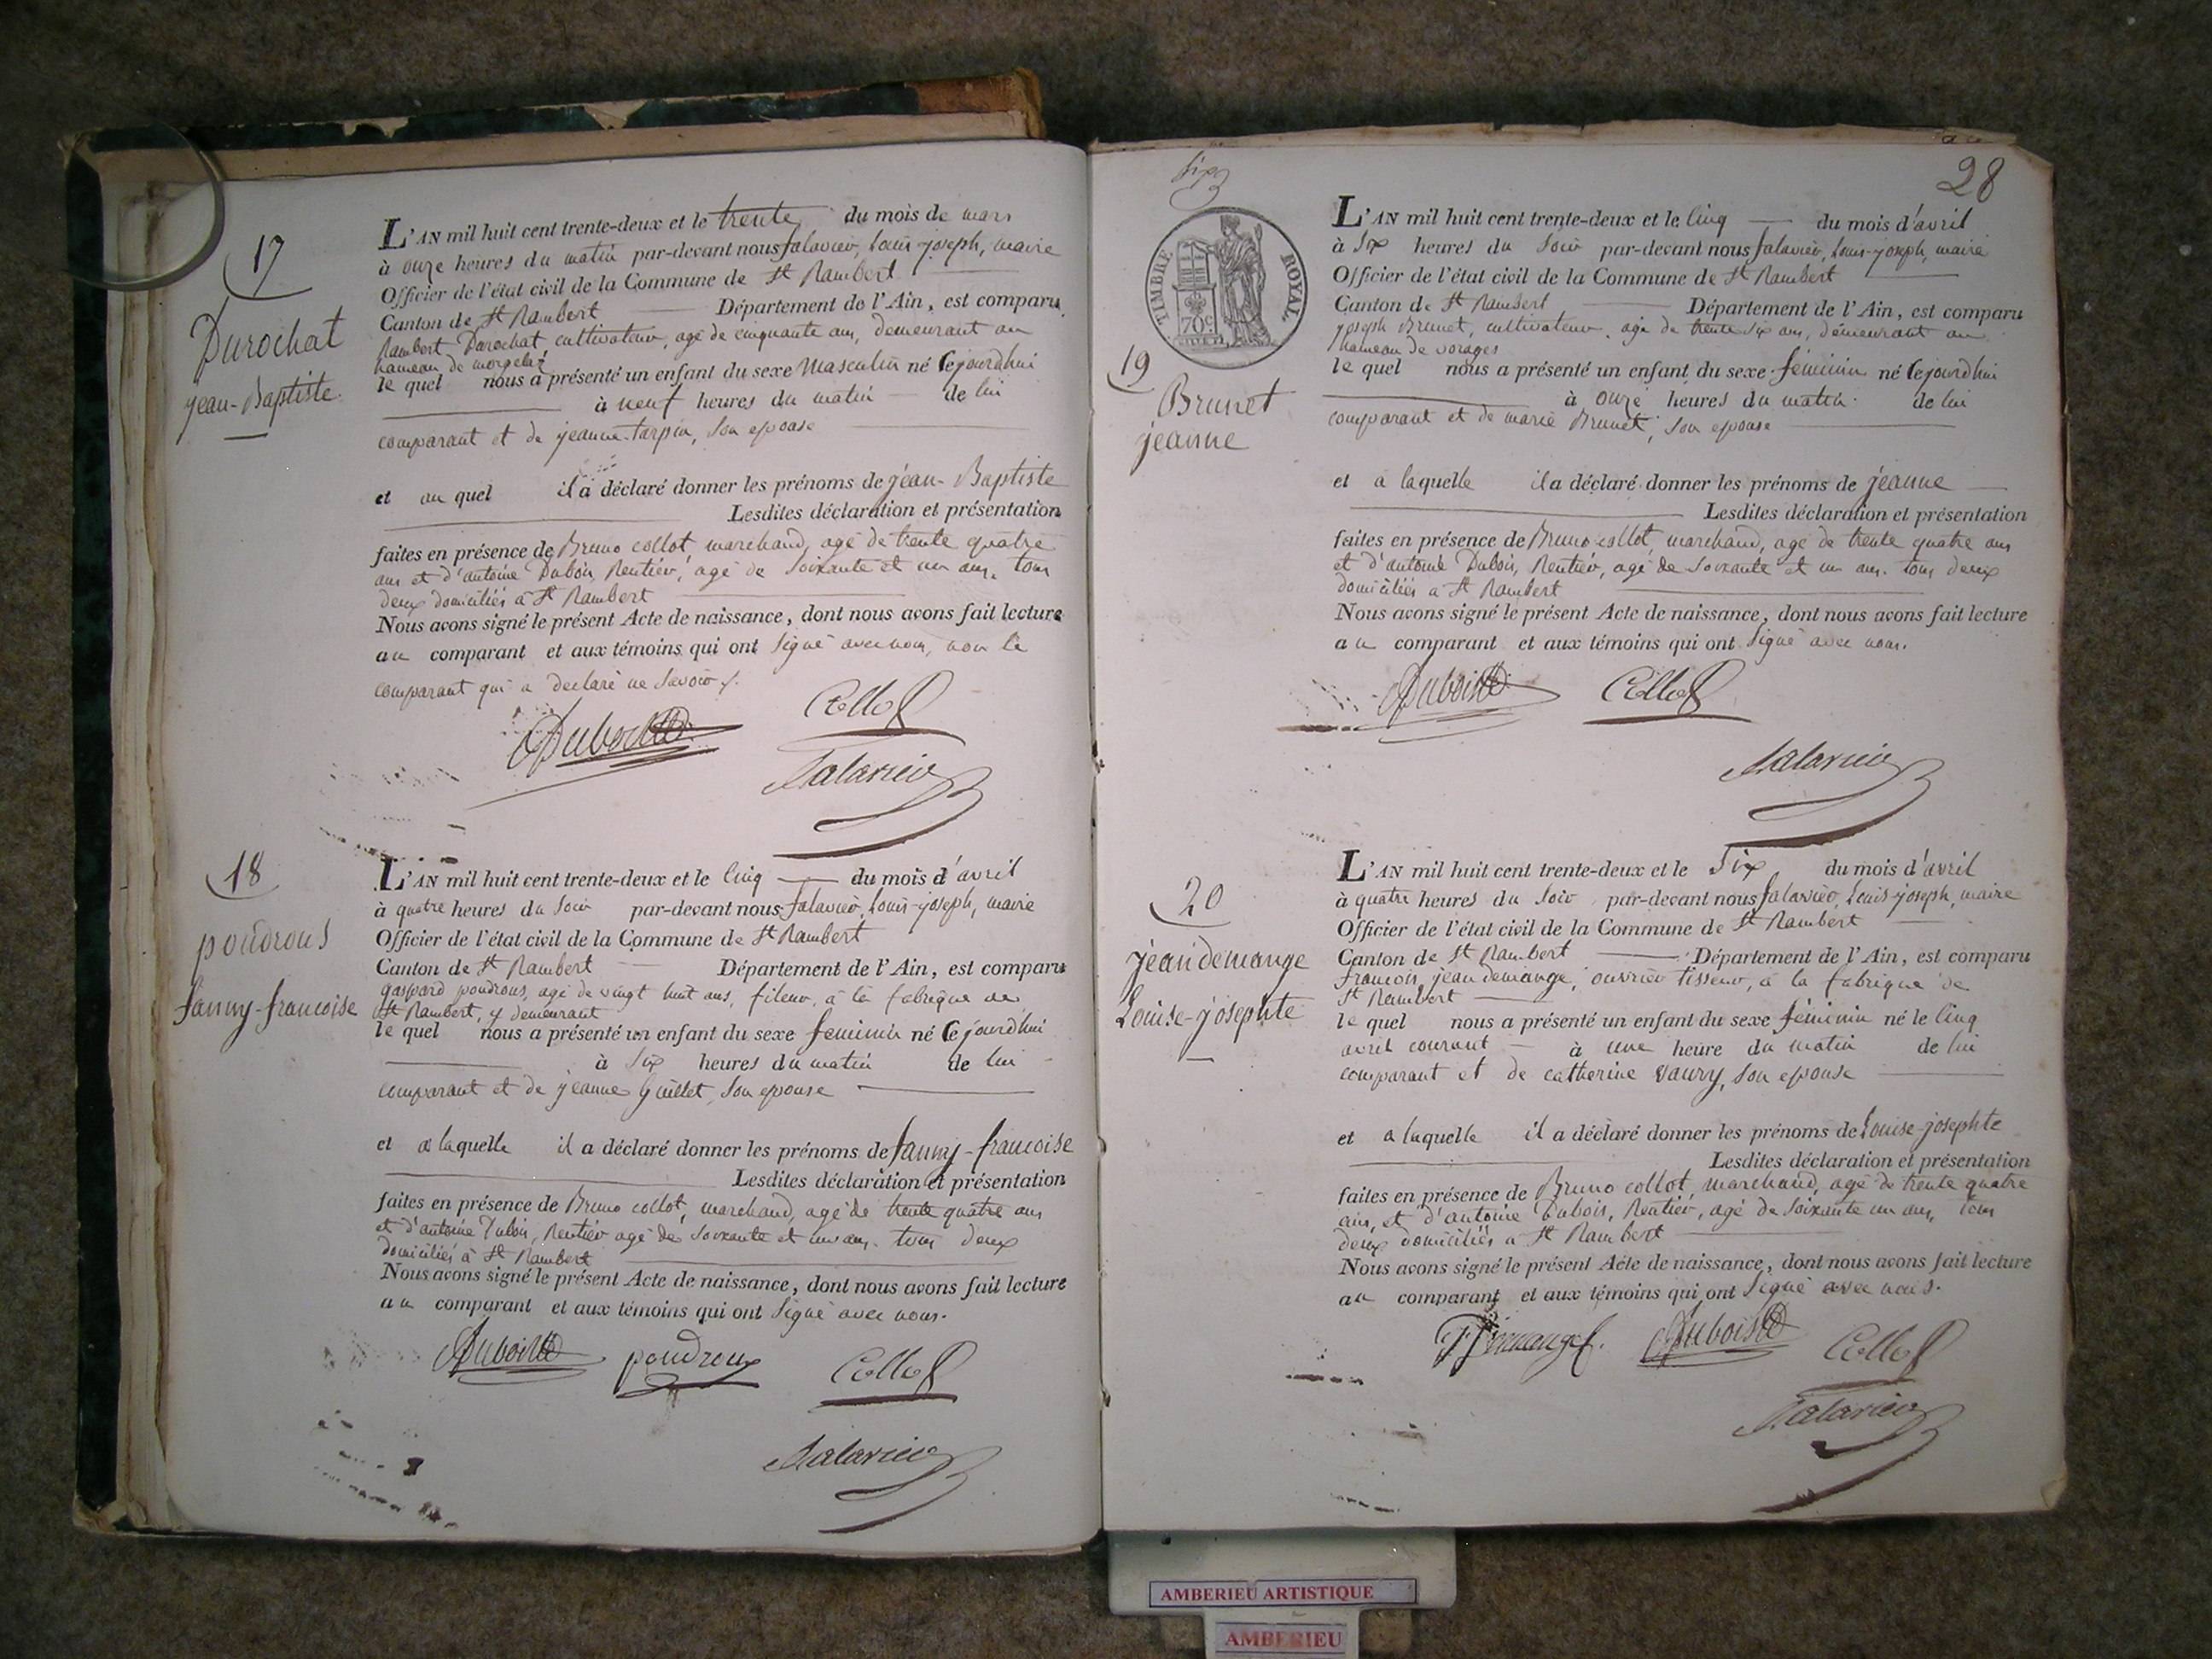 17
Durochat
jean-Baptiste
L'AN mil huit cent trente-deux et le trente du mois de mars
à onze heures du matin par-devant nous falavier, Louis-joseph, maire
Officier de l'état civil de la Commune de St Rambert
Canton de St Rambert Département de l'Ain, est comparu
Rambert Durochat, cultivateur, agé de cinquante ans, demeurant au
hameau de morgelaz
le quel nous a présenté un enfant du sexe masculin né cejourdhui
à neuf heures du matin de lui
comparant et de jeanne tarpin, son epouse
et au quel il a déclaré donner les prénoms de jean-Baptiste
Lesdites déclaration et présentation
faites en présence de Bruno collot, marchand, agé de trente quatre
ans et d'antoine Dubois, Rentier, agé de soixante et un ans. tous
deux domiciliés à St Rambert
Nous avons signé le présent Acte de naissance, dont nous avons fait lecture
au comparant et aux témoins qui ont signé avec nous, non le
comparant qui a declaré ne savoir
Dubois
Collot
falavier
18
poudrous
fanny-francoise
L'AN mil huit cent trente-deux et le cinq du mois d'avril
à quatre heures du soir par-devant nous falavier, Louis-joseph, maire
Officier de l'état civil de la Commune de St Rambert
Canton de St Rambert Département de l'Ain, est comparu
gaspard poudrous, agé de vingt huit ans, fileur, à la fabrique de
St Rambert, y demeurant
le quel nous a présenté un enfant du sexe feminin né cejourdhui
à six heures du matin de lui
comparant et de jeanne Guillet, son epouse
et a laquelle il a déclaré donner les prénoms de fanny-francoise
Lesdites déclaration et présentation
faites en présence de Bruno collot, marchand, agé de trente quatre ans
et d'antoine Dubois, Rentier agé de soixante et un ans. tous deux
domiciliés à St Rambert
Nous avons signé le présent Acte de naissance, dont nous avons fait lecture
au comparant et aux témoins qui ont signé avec nous.
Dubois
poudroux
Collot
falavier
six
28
TIMBRE ROYAL
70c
19
Brunet
jeanne
L'AN mil huit cent trente-deux et le cinq du mois d'avril
à six heures du soir par-devant nous falavier, Louis-joseph, maire
Officier de l'état civil de la Commune de St Rambert
Canton de St Rambert Département de l'Ain, est comparu
joseph Brunet, cultivateur, agé de trente six ans, demeurant au
hameau de vorages
le quel nous a présenté un enfant du sexe féminin né cejourdhui
à onze heures du matin de lui
comparant et de marie Brunet, son epouse
et a laquelle il a déclaré donner les prénoms de jeanne
Lesdites déclaration et présentation
faites en présence de Bruno collot, marchand, agé de trente quatre ans
et d'antoine Dubois, Rentier, agé de soixante et un ans. tous deux
domiciliés à St Rambert
Nous avons signé le présent Acte de naissance, dont nous avons fait lecture
au comparant et aux témoins qui ont signé avec nous.
Dubois
Collot
falavier
20
jeandemange
Louise-josephte
L'AN mil huit cent trente-deux et le six du mois d'avril
à quatre heures du soir par-devant nous falavier, Louis-joseph, maire
Officier de l'état civil de la Commune de St Rambert
Canton de St Rambert Département de l'Ain, est comparu
francois, jeandemange, ouvrier tisseur, à la fabrique de
St Rambert
le quel nous a présenté un enfant du sexe féminin né le cinq
avril courant à une heure du matin de lui
comparant et de catherine vaury, son epouse
et a laquelle il a déclaré donner les prénoms de Louise-josephte
Lesdites déclaration et présentation
faites en présence de Bruno collot, marchand, agé de trente quatre
ans, et d'antoine Dubois, Rentier, agé de soixante un ans, tous
deux domiciliés à St Rambert
Nous avons signé le présent Acte de naissance, dont nous avons fait lecture
au comparant et aux témoins qui ont signé avec nous.
Dubois
Collot
falavier
AMBERIEU ARTISTIQUE
AMBERIEU